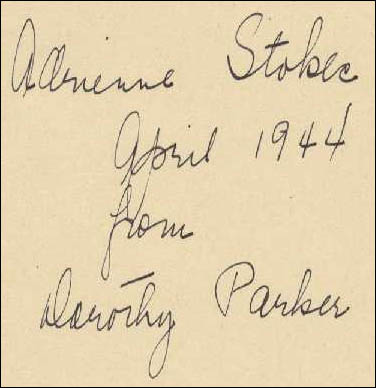 Adrienne Stokes
April 1944
from
Dorothy Parker